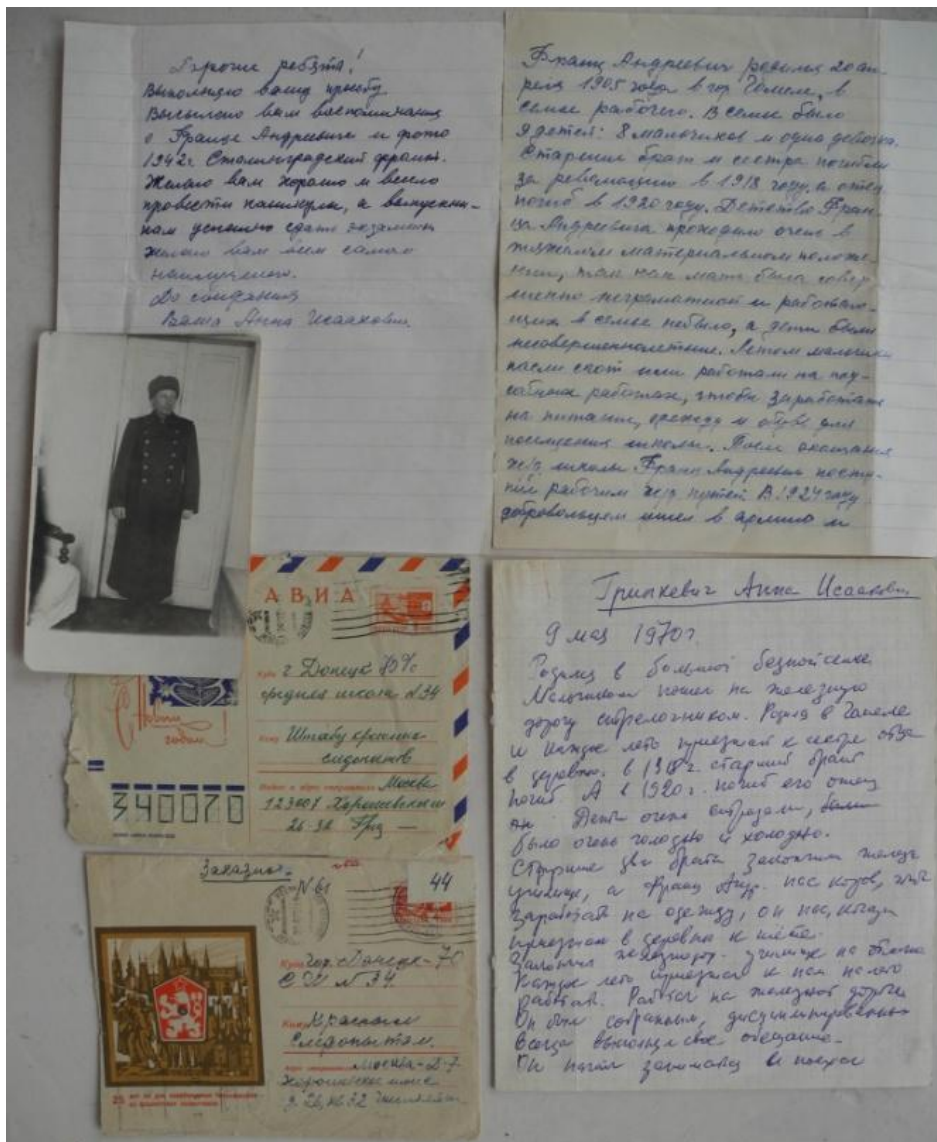 Дорогие ребята!
Выполняю вашу просьбу
Высылаю вам воспоминания
о Франце Андреевиче и фото
1942г Сталинградский фронт.
Желаю вам хорошо и весело
провести каникулы, а выпускни-
кам успешно сдать экзамены
желаю вам всем самого
наилучшего.
До свидания
Ваша Анна Исааковн.
Франц Андреевич родился 20 ап-
реля 1905 года в гор Гомеле, в
семье рабочего. В семье было
9 детей: 8 мальчиков и одна девочка.
Старший брат и сестра погибли
за революцию в 1918 году, а отец
погиб в 1920 году. Детство Фран-
ца Андреевича проходило очень в
тяжелом материальном положе-
нии, так как мать была совер-
шенно неграмотной и работаю-
щих в семье небыло, а дети были
несовершеннолетние. Летом мальчики
пасли скот или работали на под-
собных работах, чтобы заработать
на питание, одежду и обувь для
посещения школы. После окончания
ж/д школы Франц Андреевич посту-
пил рабочим ж/д путей В 1924 году
добровольцем ушел в армию и
АВИА
С Новым
годом!
Куда г Донецк 70
средняя школа N34
Кому Штабу красных
следопытов
Москва
123007 Хорошевское
26-32
340070
Заказное
N 61
44
Куда Гор. Донецк-70
СШ N 34.
Кому Красным
Следопытам.
Москва-Д-7
Хорошевское шоссе
д. 26, кв 32
25 лет со дня освобождения Чехословакии
Гришкевич Анна Исааковн
9 мая 1970г.
Родился в большой бедной семье
Мальчиком пошел на железную
дорогу стрелочником. Родня в Гомеле
и каждое лето приезжал к сестре отца
в деревню. в 1918г. старший брат
погиб. А в 1920г. погиб его отец
Дети очень
было очень голодно и холодно.
Старшие два брата закончили
училище, а Франц Андр. пас коров,
заработать на одежду, он пас, когда
приезжал в деревню к тёте.
Закончил училище
Каждое лето приезжал к нам на лето
работать. Работал на железной дороге
Он был собранным, дисциплинированным
всегда выполнял свое обещание.
Он начал заниматься и поехал